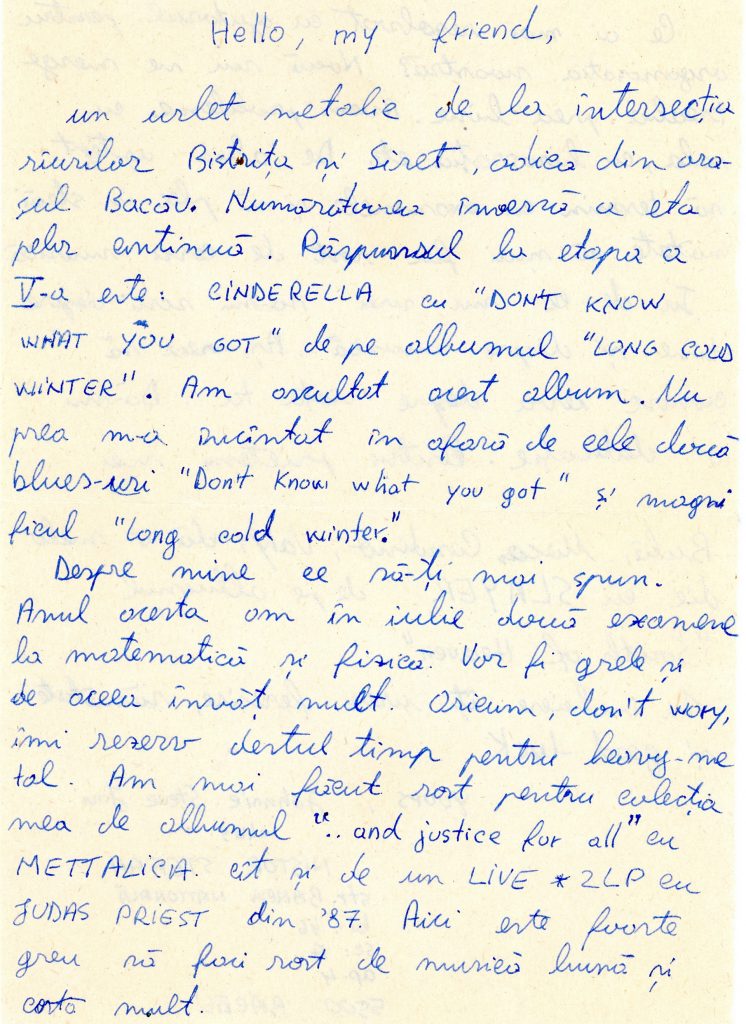 Hello, my friend,
un urlet metalic de la intersecția
rîurilor Bistrița și Siret, adică din ora-
șul Bacău. Numărătoarea inversă a eta
pelor continuă. Răspunsul la etapa a
V-a este: CINDERELLA cu "DON'T KNOW
WHAT YOU GOT" de pe albumul "LONG COLD
WINTER". Am ascultat acest album. Nu
prea m-a încîntat în afară de cele două
blues-uri "Don't Know what you got" și magni
ficul "Long cold winter."
Despre mine ce să-ți mai spun.
Anul acesta am în iulie două examene
la matematică și fizică. Vor fi grele și
de aceea învăț mult. Oricum, don't wory,
îmi rezerv destul timp pentru heavy-me
tal. Am mai făcut rost pentru colecția
mea de albumul ".. and justice for all" cu
METTALICA. cît și de un LIVE * 2LP cu
JUDAS PRIEST din '87. Aici este foarte
greu să faci rost de muzică bună și
costa mult.